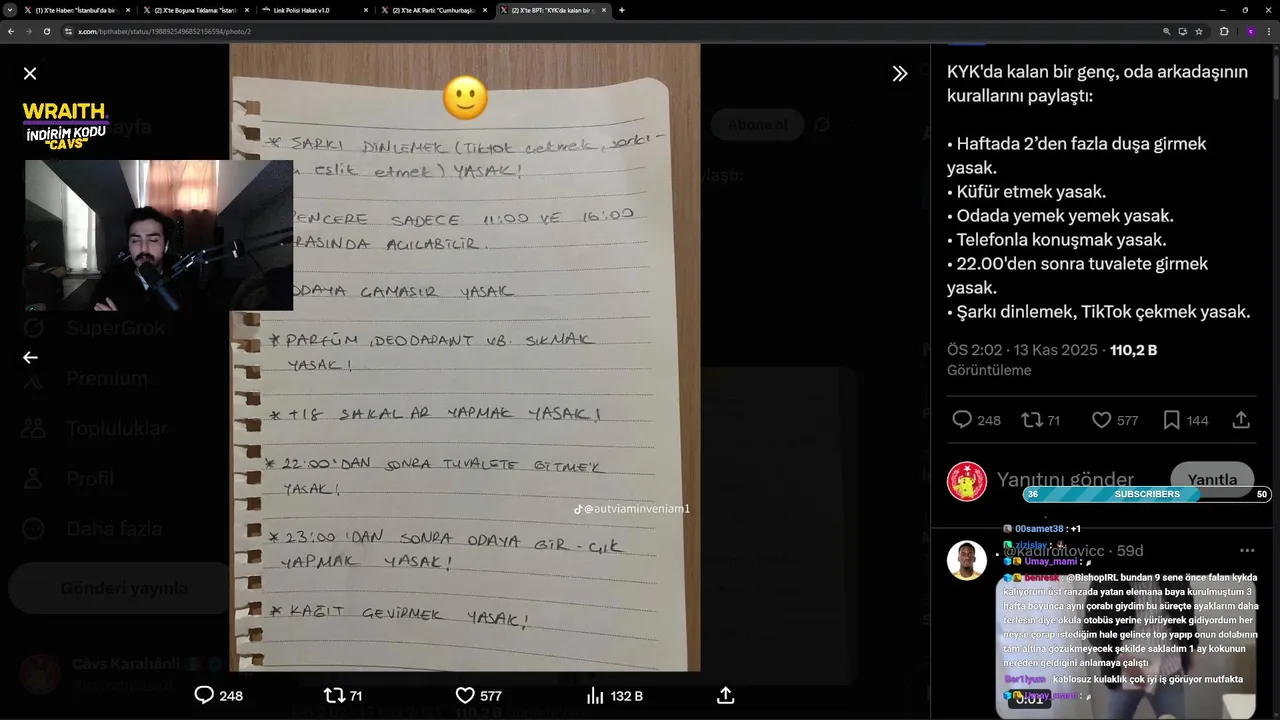 (1) X'te Haber: "İstanbul'da bir
(2) X'te Boşuna Tıklama: "İstanl
Link Polisi Hakat v1.0
(2) X'te AK Parti: "Cumhurbaşka
(2) X'te BPT: "KYK'da kalan bir g
x.com/bpthaber/status/1988925496852156594/photo/2
WRAITH.
İNDİRİM KODU
"CAVS"
Abone ol
SuperGrok
Premium
Topluluklar
Profil
Daha fazla
Gönderi yayınla
Câvs Karahânli
* ŞARKI DİNLEMEK (Tiktok çekmek, şarkı-
eşlik etmek) YASAK!
PENCERE SADECE 11:00 VE 16:00
ARASINDA AÇILABİLİR.
ODAYA ÇAMAŞIR YASAK
* PARFÜM, DEODARANT VB. SIKMAK
YASAK!
* +18 ŞAKALAR YAPMAK YASAK!
* 22:00'DAN SONRA TUVALETE GİTMEK
YASAK!
@autviaminveniam1
* 23:00'DAN SONRA ODAYA GİR-ÇIK
YAPMAK YASAK!
* KAĞIT ÇEVİRMEK YASAK!
248 71 577 132 B
KYK'da kalan bir genç, oda arkadaşının
kurallarını paylaştı:
• Haftada 2’den fazla duşa girmek
yasak.
• Küfür etmek yasak.
• Odada yemek yemek yasak.
• Telefonla konuşmak yasak.
• 22.00'den sonra tuvalete girmek
yasak.
• Şarkı dinlemek, TikTok çekmek yasak.
ÖS 2:02 · 13 Kas 2025 · 110,2 B
Görüntüleme
248 71 577 144
Yanıtını gönder
Yanıtla
36 SUBSCRIBERS 50
00samet38 : +1
zizislav :
@kadirdilovicc · 59d
Umay_mami :
benresk : @BishopIRL bundan 9 sene önce falan kykda
kalıyorum üst ranzada yatan elemana baya kurulmuştum 3
hafta boyunca aynı çorabı giydim bu süreçte ayaklarım daha
terlesin diye okula otobüs yerine yürüyerek gidiyordum her
neyse çorap istediğim hale gelince top yapıp onun dolabının
tam altına gözükmeyecek şekilde sakladım 1 ay kokunun
nereden geldiğini anlamaya çalıştı
Bar1lyum : kablosuz kulaklık çok iyi iş görüyor mutfakta
Umay_mami :
0:01